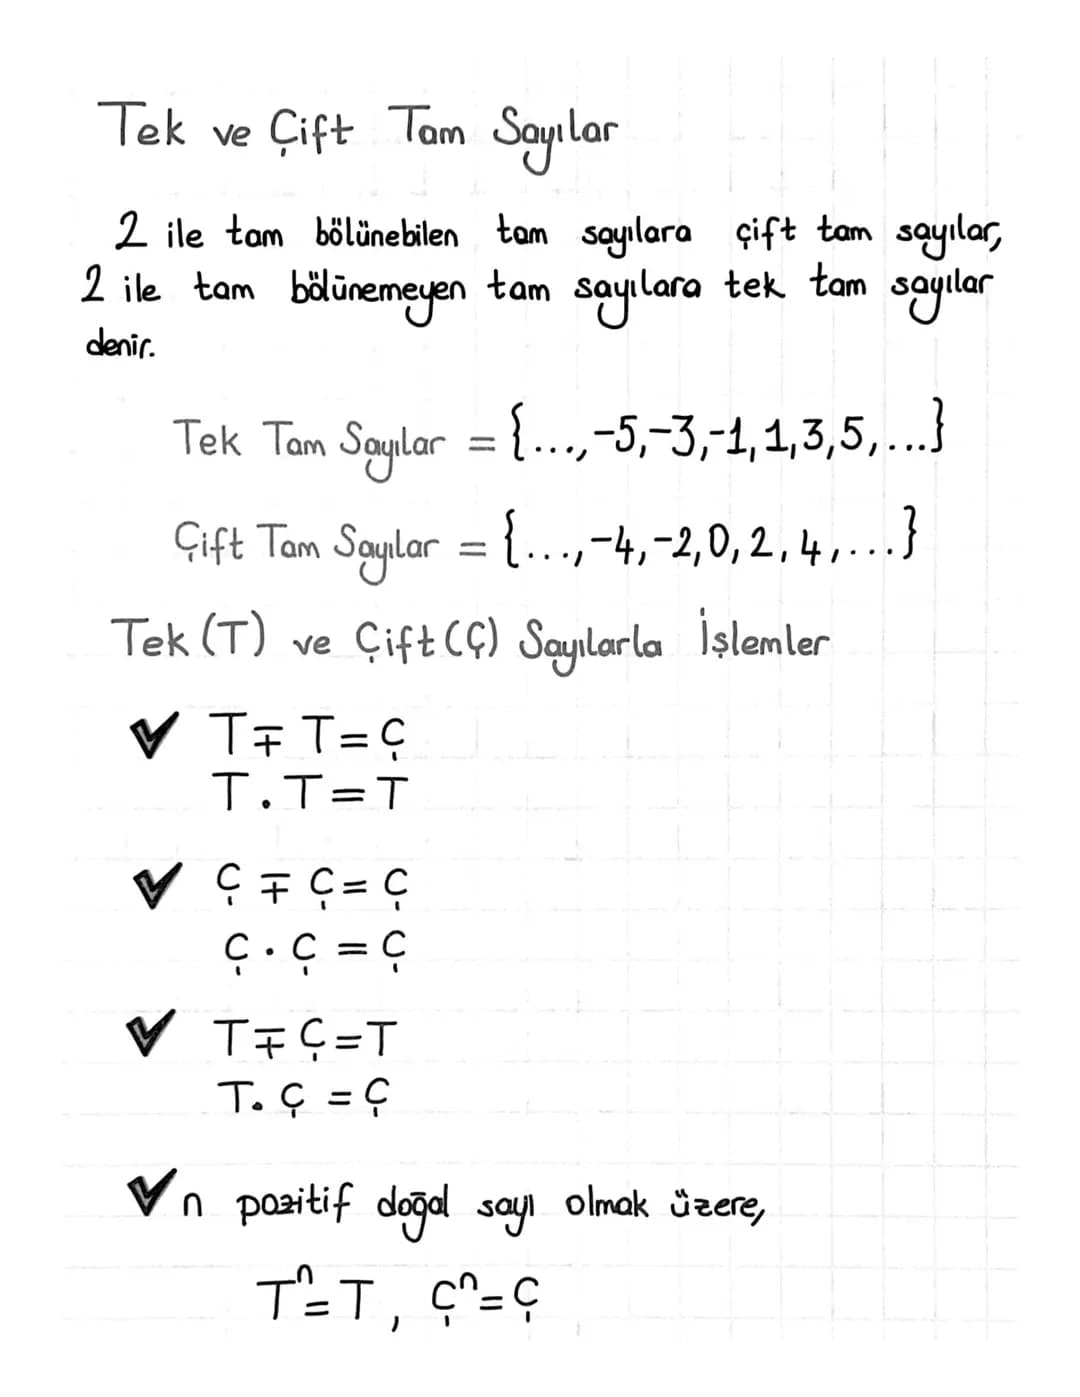 Tek ve Çift Tam Sayılar
2 ile tam bölünebilen tam sayılara çift tam sayılar,
2 ile tam bölünemeyen tam sayılara tek tam sayılar
denir.
Tek Tam Sayılar = {...,-5,-3,-1,1,3,5,...}
Çift Tam Sayılar = {...,-4,-2,0,2,4,...}
Tek (T) ve Çift (Ç) Sayılarla İşlemler
✔ T ∓ T = Ç
T . T = T
✔ Ç ∓ Ç = Ç
Ç . Ç = Ç
✔ T ∓ Ç = T
T . Ç = Ç
✔ n pozitif doğal sayı olmak üzere,
Tⁿ = T, Çⁿ = Ç